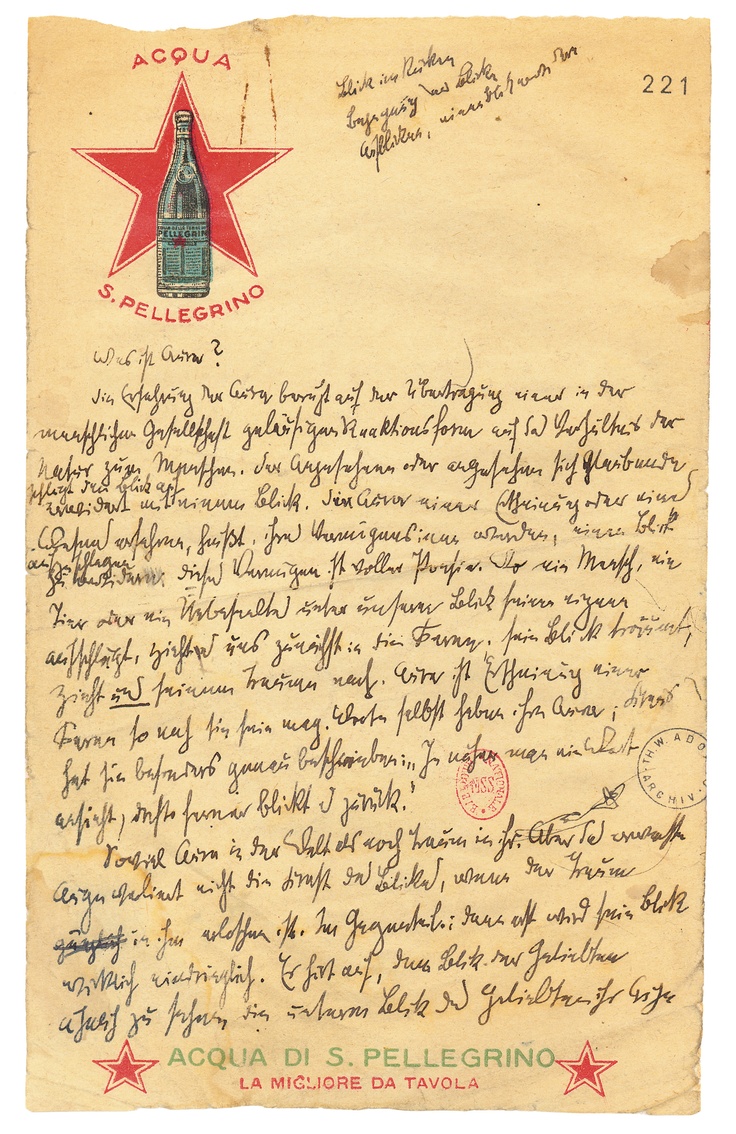 ACQUA
S. PELLEGRINO
PELLEGRINO
Blick im Rücken
Begegnung der Blicke
Aufblicken,
221
Was ist Aura?
Die Erfahrung der Aura beruht auf der Übertragung einer in der
menschlichen Gesellschaft geläufigen Reaktionsform auf das Verhältnis der
Natur zum Menschen. Der Angesehene oder angesehen sich Glaubende
schlägt den Blick auf
erwidert mit einem Blick. Die Aura einer Erscheinung oder eines
Wesens erfahren, heißt, ihres Vermögens inne werden, einen Blick
aufzuschlagen
zu erwidern. Dieses Vermögen ist voller Poesie. Wo ein Mensch, ein
Tier oder ein Unbeseeltes unter unserm Blick seinen eignen
aufschlägt, zieht es uns zunächst in die Ferne; sein Blick träumt,
zieht uns seinem Traume nach. Aura ist Erscheinung einer
Ferne so nah sie sein mag. Worte selbst haben ihre Aura; Kraus
hat sie besonders genau beschrieben: „Je näher man ein Wort
ansieht, desto ferner blickt es zurück."
Soviel Aura in der Welt als noch Traum in ihr. Aber das erwachte
Auge verlernt nicht die Kunst des Blickes, wenn der Traum
in ihm erloschen ist. Im Gegenteil: dann erst wird sein Blick
wirklich eindringlich. Er hört auf, dem Blick der Geliebten
ähnlich zu sehen die unterm Blick des Geliebten ihr Auge
BIBLIOTHÈQUE NATIONALE MSS
TH. W. ADO
ARCHIV
ACQUA DI S. PELLEGRINO
LA MIGLIORE DA TAVOLA